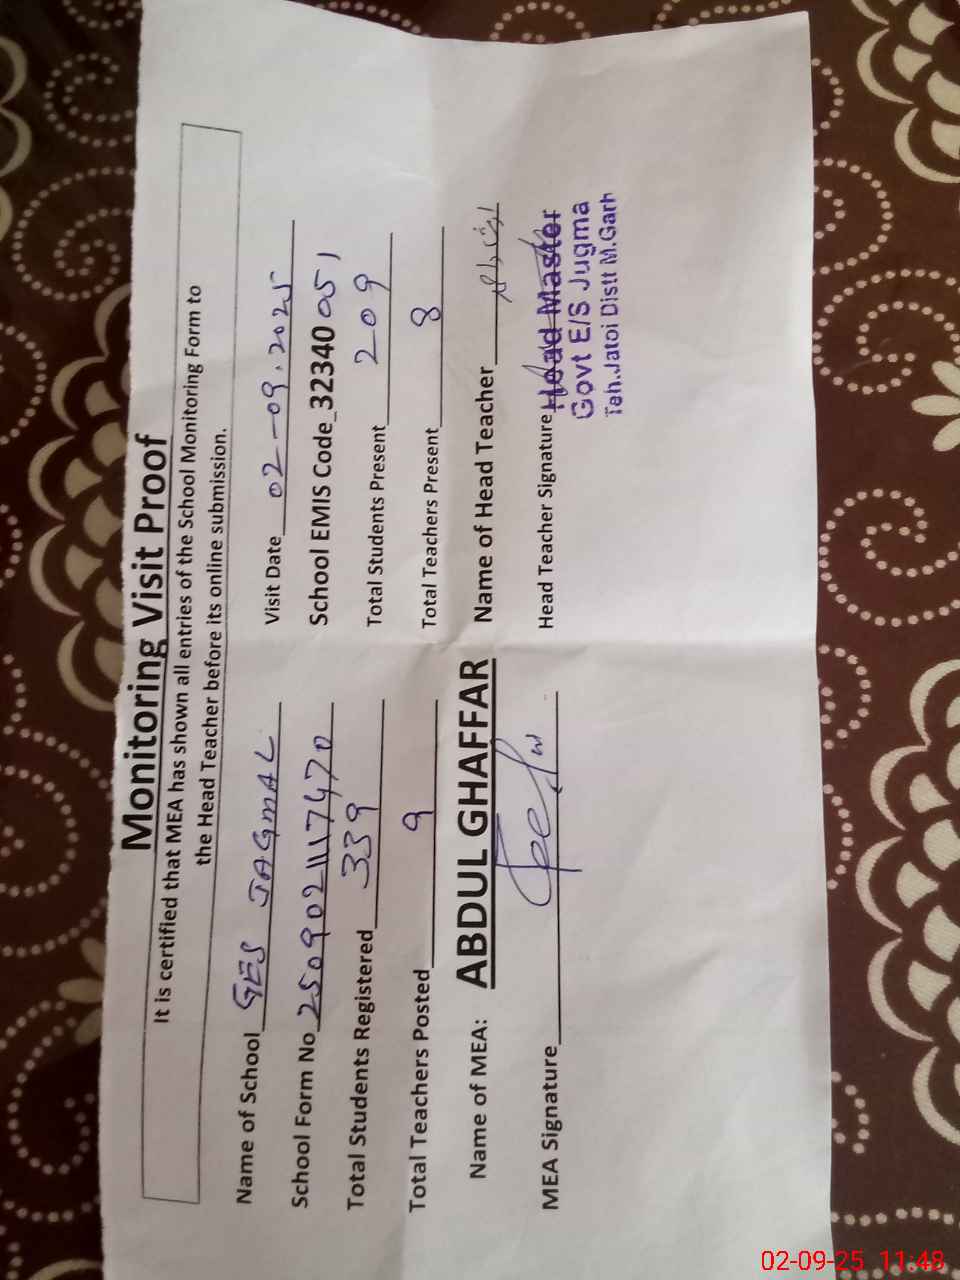 Monitoring Visit Proof
It is certified that MEA has shown all entries of the School Monitoring Form to
the Head Teacher before its online submission.
Name of School GES JAGMAL Visit Date 02-09.2025
School Form No 250902111747 0 School EMIS Code 32340051
Total Students Registered 339 Total Students Present 209
Total Teachers Posted 9 Total Teachers Present 8
Name of MEA: ABDUL GHAFFAR Name of Head Teacher
MEA Signature Head Teacher Signature
Head Master
Govt E/S Jugma
Teh.Jatoi Distt M.Garh
02-09-25 11:48